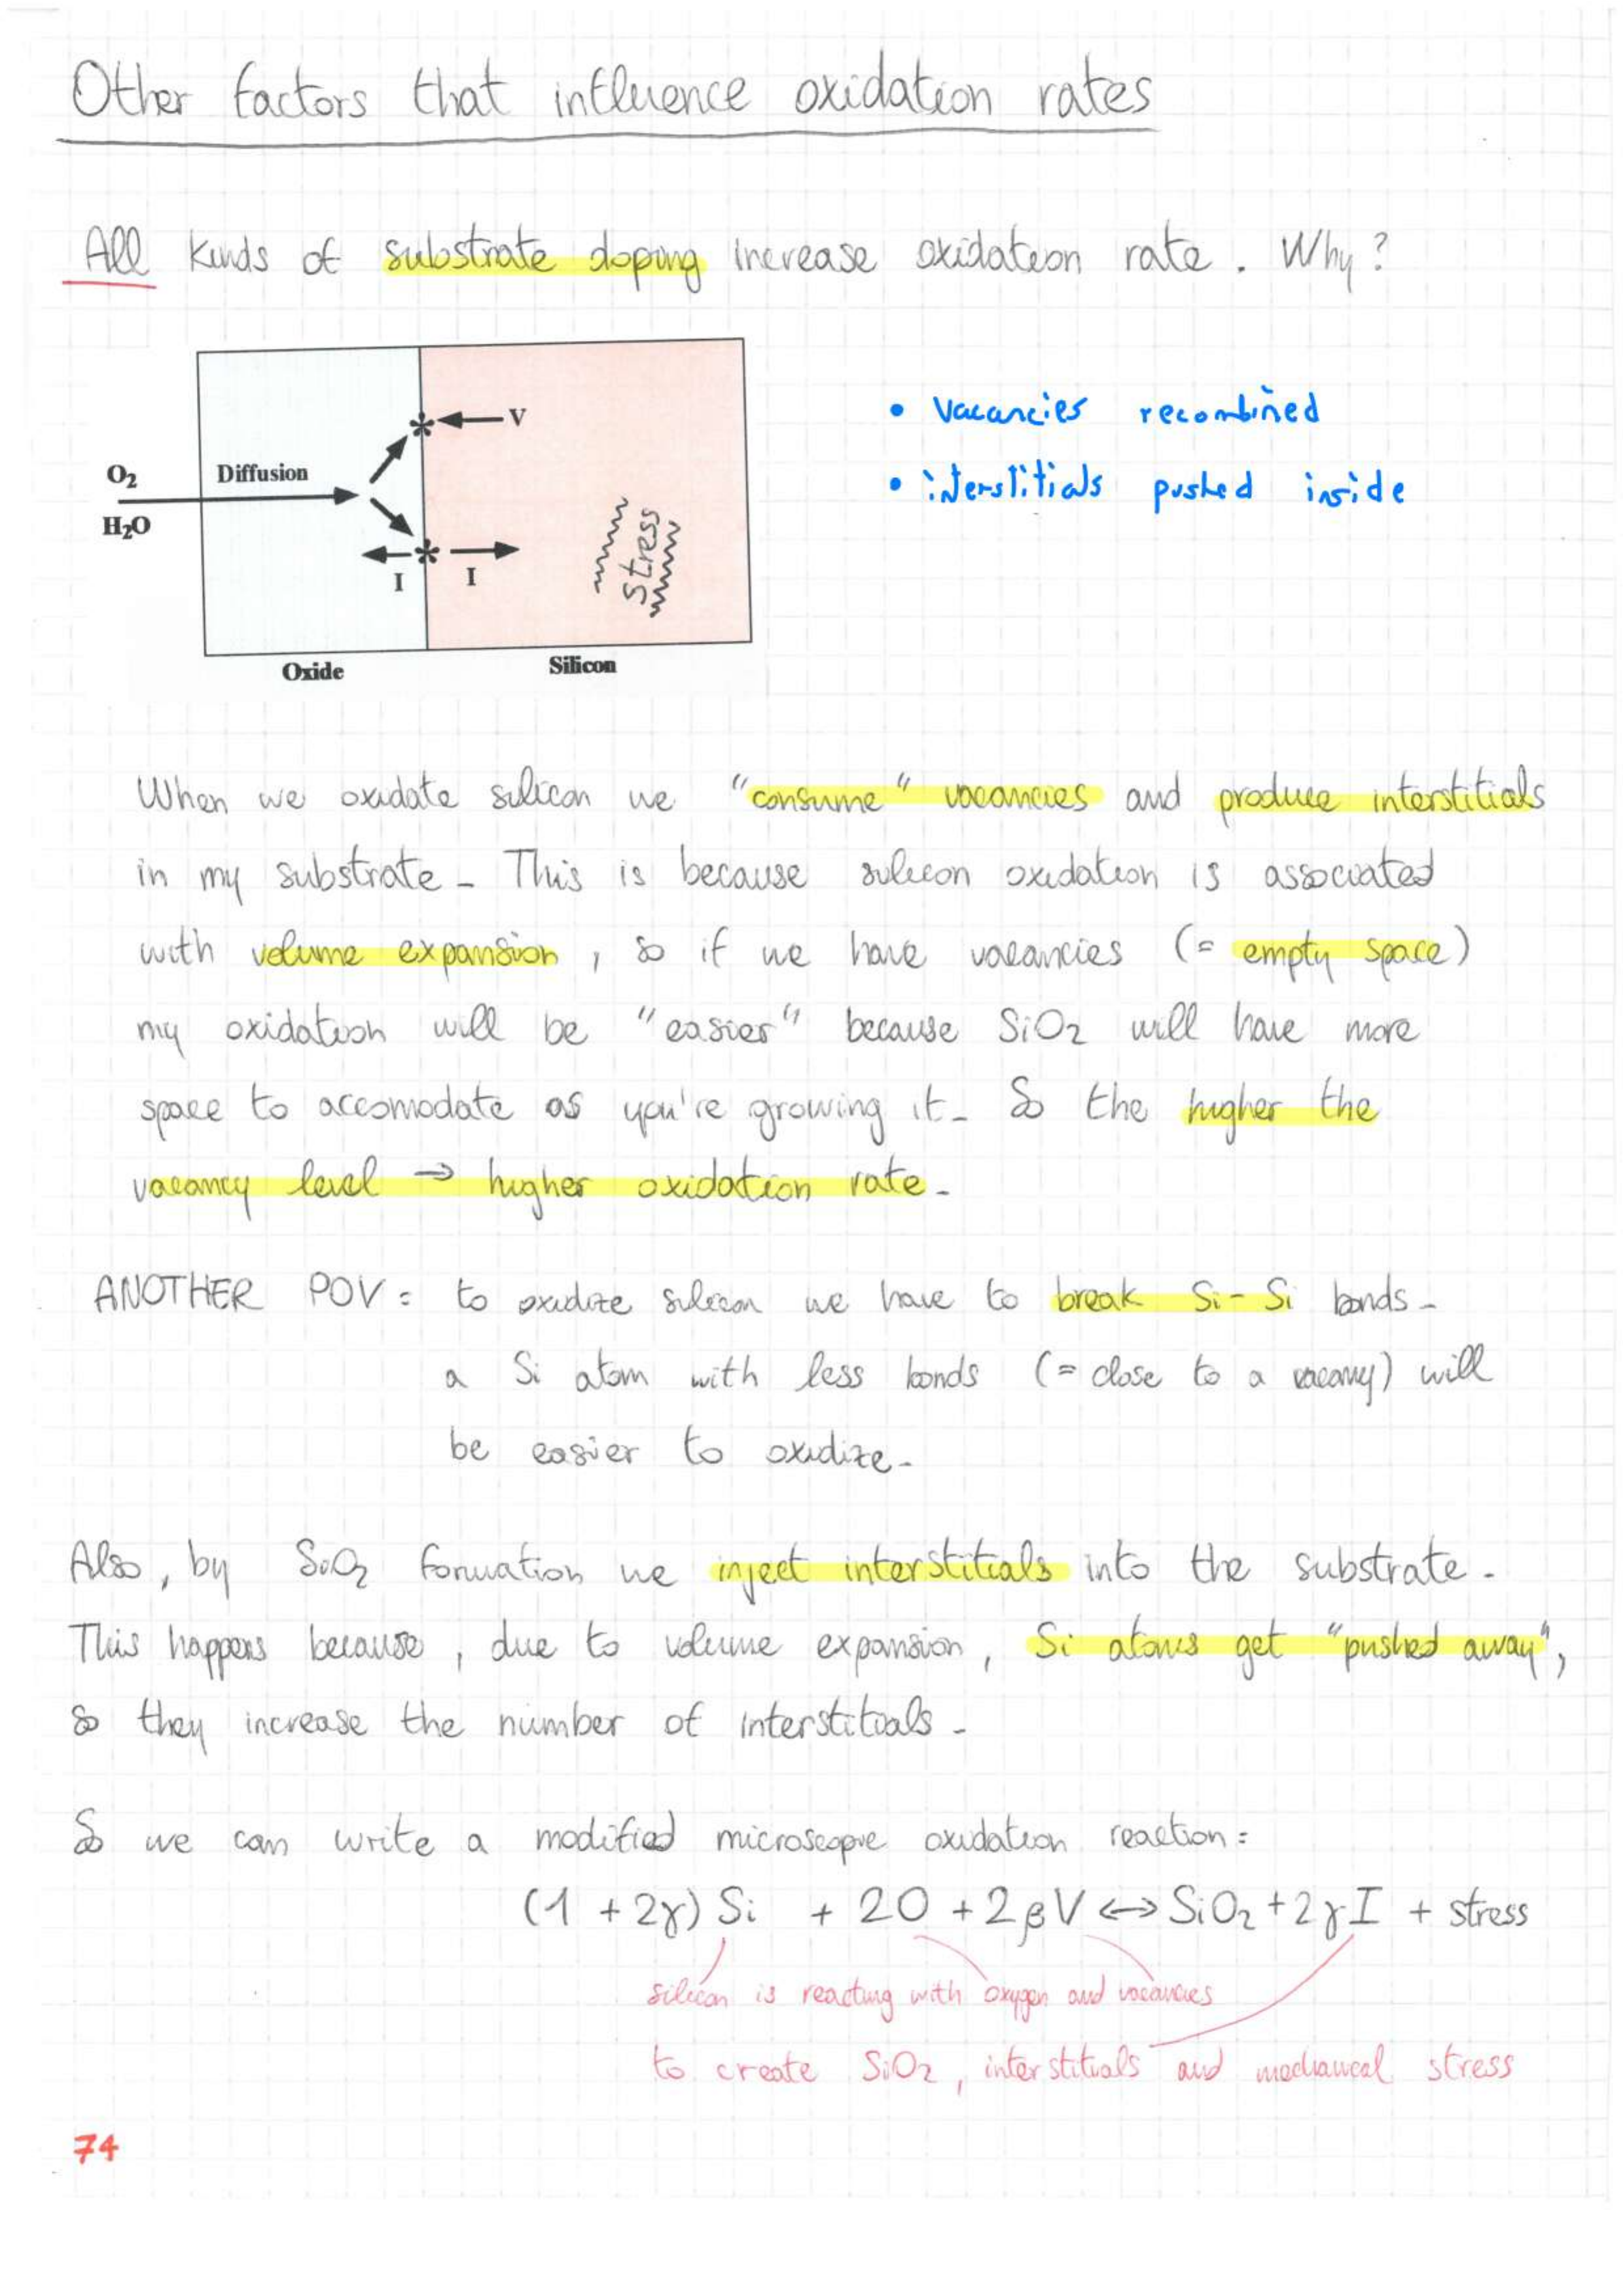 Other factors that influence oxidation rates
All kinds of substrate doping increase oxidation rate. Why?
• vacancies recombined
• interstitials pushed inside
V
O₂
Diffusion
H₂O
I
I
stress
Oxide
Silicon
When we oxidate silicon we "consume" vacancies and produce interstitials
in my substrate - This is because silicon oxidation is associated
with volume expansion, so if we have vacancies (= empty space)
my oxidation will be "easier" because SiO₂ will have more
space to accomodate as you're growing it - So the higher the
vacancy level ⇒ higher oxidation rate -
ANOTHER POV: to oxidize silicon we have to break Si-Si bonds -
a Si atom with less bonds (= close to a vacancy) will
be easier to oxidize -
Also, by SiO₂ formation we inject interstitials into the substrate.
This happens because, due to volume expansion, Si atoms get "pushed away",
so they increase the number of interstitials -
So we can write a modified microscopic oxidation reaction:
(1 + 2γ) Si + 2O + 2βV ↔ SiO₂ + 2γI + stress
silicon is reacting with oxygen and vacancies
to create SiO₂, interstitials and mechanical stress
74